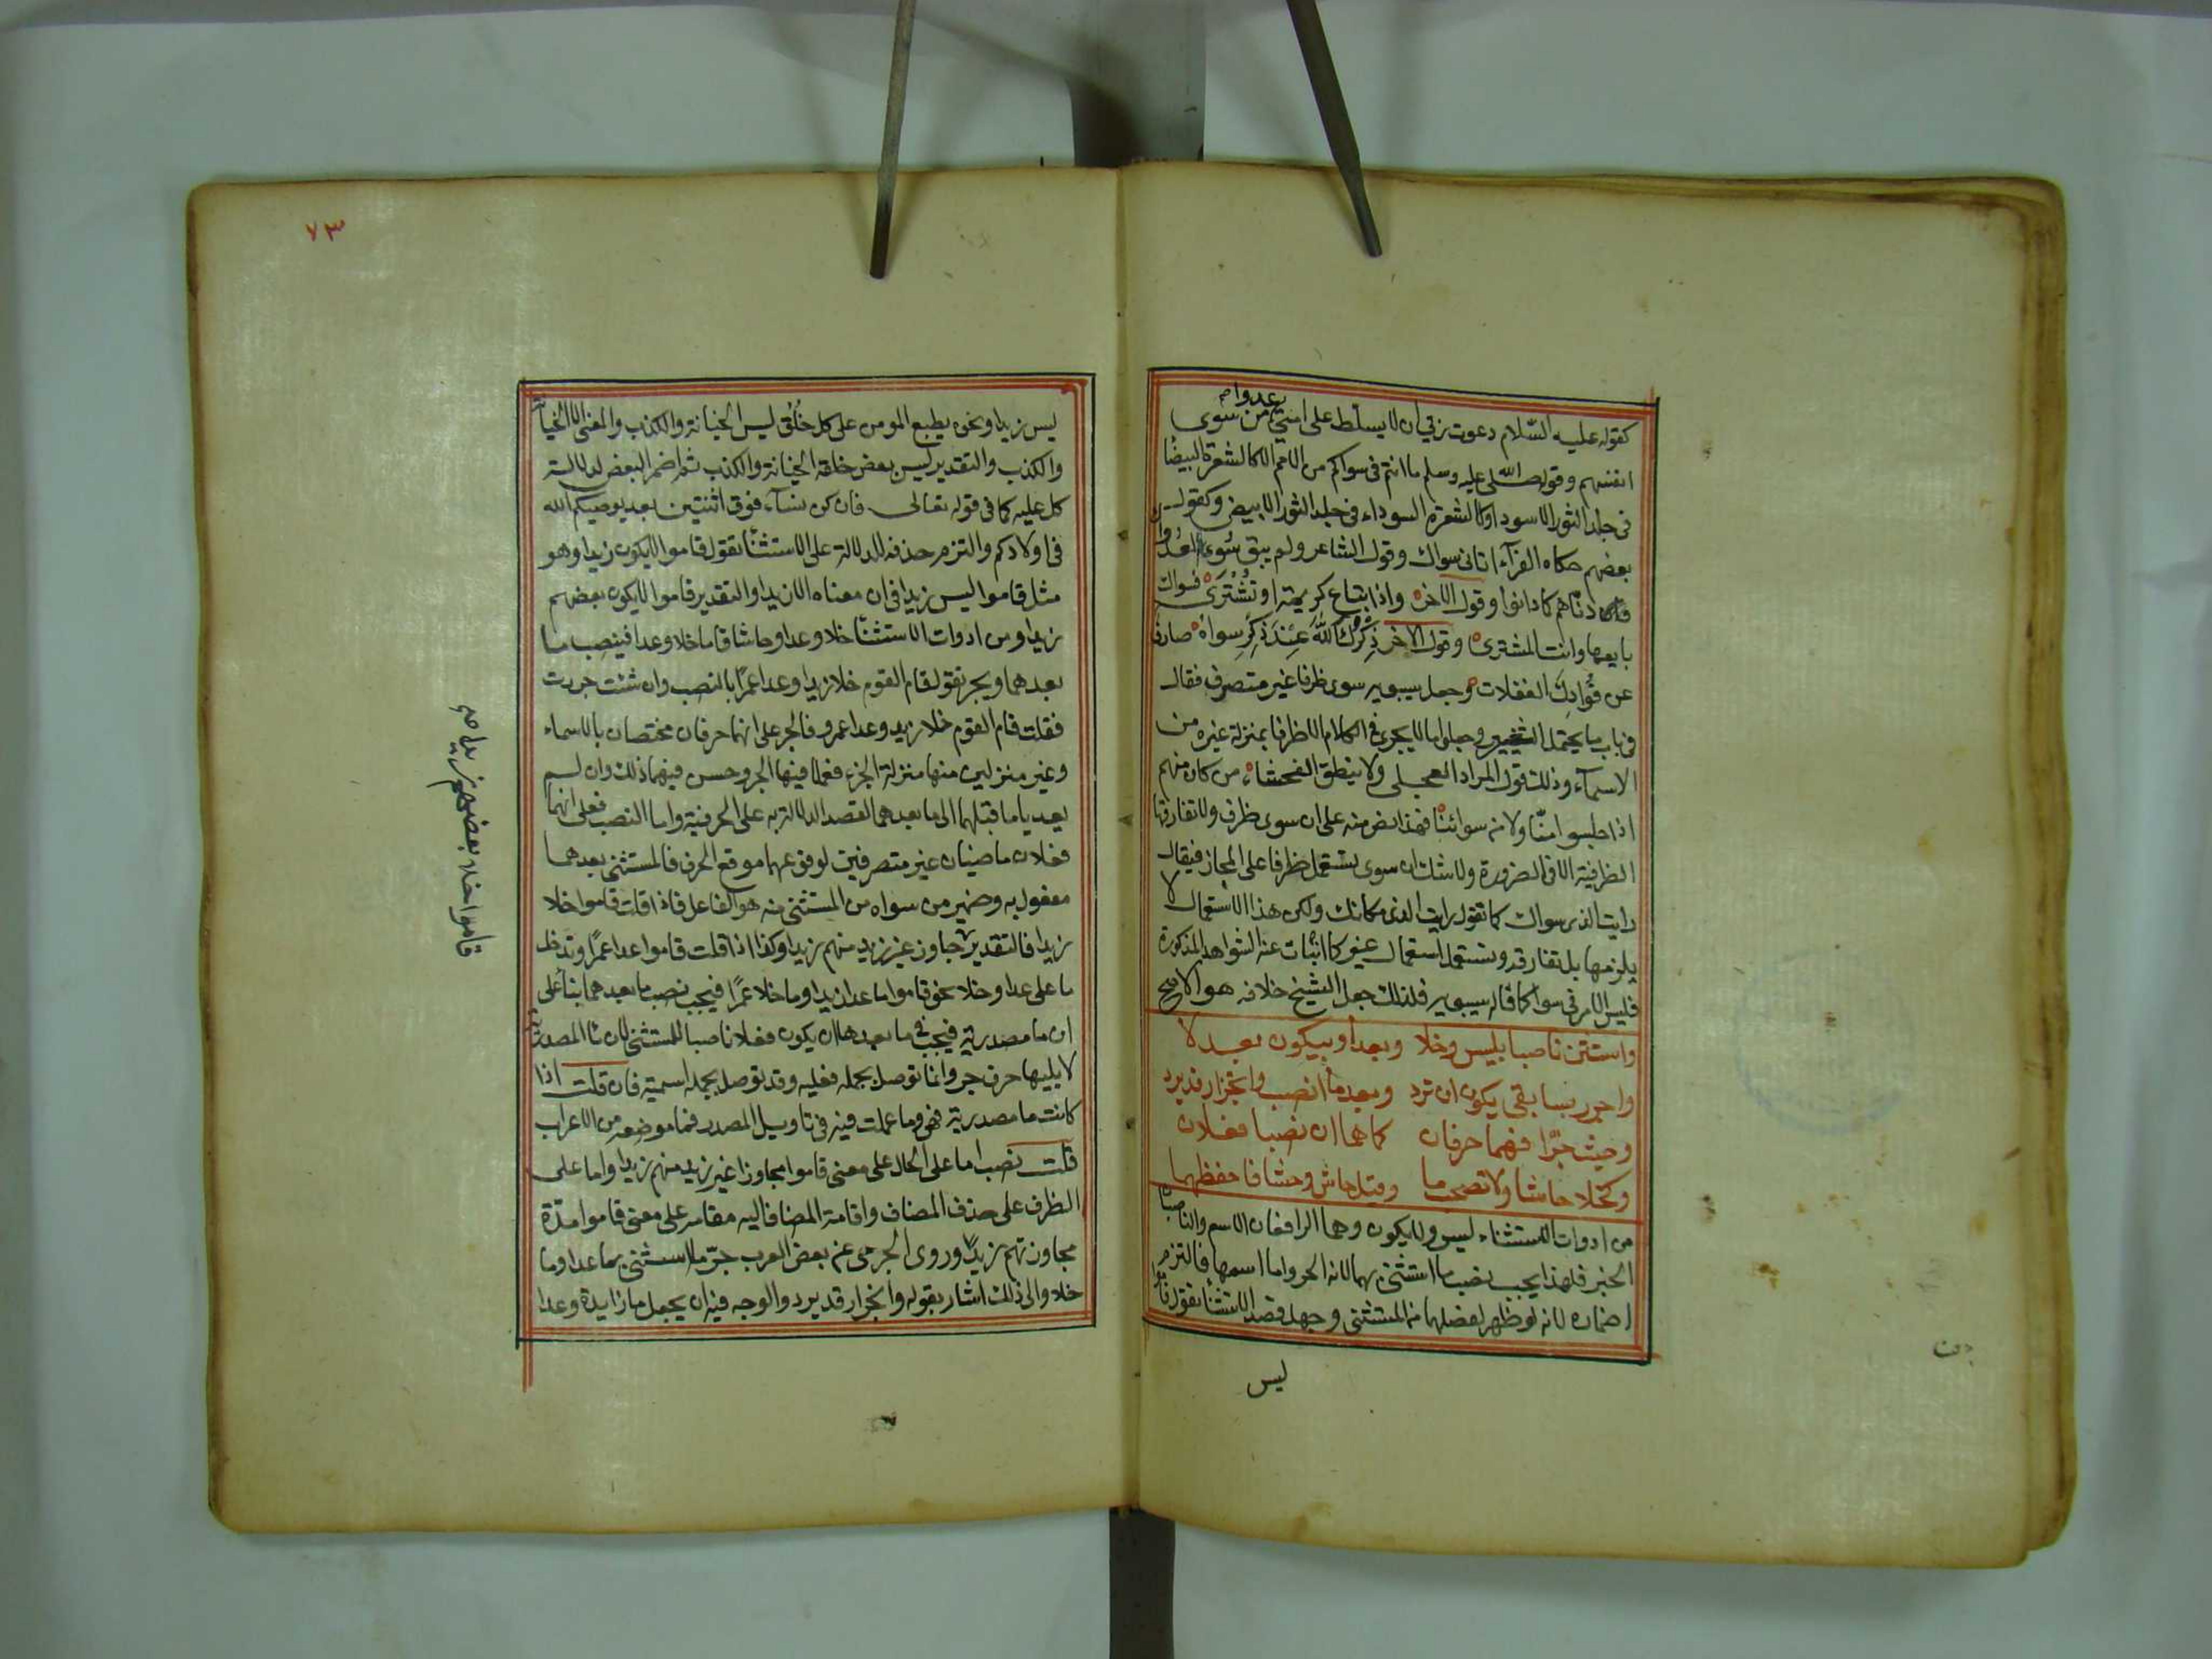 عدوا
كقوله عليه السّلام دعوت ربي ان لا يسلّط على امتي من سوى
انفسهم وقوله صلى الله عليه وسلم ما انتم في سواكم من الامم الا كالشعرة البيضا
في جلد الثور الاسود او كالشعرة السوداء في جلد الثور الابيض وكقول
بعضهم حكاه الفرآء اتاني سواك وقول الشاعر ولم يبق سوى العدوان
دناهم كما دانوا وقول الاخر واذا تباع كريمة او تُشْتَرى فسواك
بايعها وانت المشتري وقول الاخر ذِكْرُك اللهَ عِنْدَ ذِكْرِ سِواهُ صارف
عن فُؤَادِكَ الغفلات وجعل سيبويه سوى ظرفا غير متصرف فقال
في باب ما يحتمل الشعر وجعلوا ما لا يجري في الكلام الا ظرفا بمنزلة غيره من
الاسمآء وذلك قول المرار العجلي ولا ينطق الفحشاء من كان منهم
اذا جلسوا منّا ولا من سوائنا فهذا نص منه على ان سوى ظرف ولا تفارقها
الظرفية الا في الضرورة ولا شك ان سوى يستعمل ظرفا على المجاز فيقال
رايت الذي سواك كما تقول رايت الذي مكانك ولكن هذا الاستعمال لا
يلزمها بل تفارقه وتستعمل استعمال غير كما انبات عنه الشواهد المذكورة
فليس الامر في سوا كما قاله سيبويه فلذلك جعل الشيخ خلافه هو الاصح
واستثن ناصبا بليس وخلا وبعدا وبيكون بعد لا
واجرر بسابقي يكون ان ترد وبعد ما انصب وانجرار قد يرد
وحيث جرّا فهما حرفان كما هما ان نصبا فعلان
وكخلا حاشا ولا تصحب ما وقيل حاش وحشا فاحفظهما
من ادوات الاستثناء ليس ولا يكون وهما الرافعان الاسم والناصبان
الخبر فلهذا يجب نصب ما استثنى بهما لانه الخبر واما اسمها فالتزم
اضماره لانه لو ظهر لفصلهما من المستثنى وجهل قصد الاستثنا تقول قاموا
ليس
٧٣
ليس زيدا ونحوه يطبع المومن على كل خُلُق ليس الخيانة والكذب والمعنى الا الخيانة
والكذب والتقدير ليس بعض خلقه الخيانة والكذب ثم اضمر البعض لدلالة
كل عليه كما في قوله تعالى فان كن نسآء فوق اثنتين بعد يوصيكم الله
في اولادكم والتزم حذفه للدلالة على الاستثنا تقول قاموا لا يكون زيدا وهو
مثل قاموا ليس زيدا في ان معناه الا زيدا والتقدير قاموا لا يكون بعضهم
زيدا ومن ادوات الاستثنا خلا وعدا وحاشا فاما خلا وعدا فينصب ما
بعدهما ويجر تقول قام القوم خلا زيدا وعدا عمرًا بالنصب وان شئت جررت
فقلت قام القوم خلا زيد وعدا عمرو فالجر على انهما حرفان مختصان بالاسماء
وغير منزلين منها منزلة الجزء فعملا فيها الجر وحسن فيهما ذلك وان لم
يعديا ما قبلهما الى ما بعدهما لقصد الدلالة به على الحرفية واما النصب فعلى انهما
فعلان ماضيان غير متصرفين لوقوعهما موقع الحرف فالمستثنى بعدهما
مفعول به وضمير من سواه من المستثنى منه هو الفاعل فاذا قلت قاموا خلا
زيدا فالتقدير جاوز غير زيد منهم زيدا وكذا اذا قلت قاموا عدا عمرًا وتدخل
ما على عدا وخلا نحو قاموا ما عدا زيدا وما خلا عمرًا فيجب نصب ما بعدهما بنأ على
ان ما مصدرية فيجب في ما بعدها ان يكون فعلا ناصبا للمستثنى لان ما المصدرية
لا يليها حرف جر وانما توصل بجملة فعلية وقد توصل بجملة اسمية فان قلت اذا
كانت ما مصدرية فهي وما عملت فيه في تاويل المصدر فما موضعه من الاعراب
قلت نصب اما على الحال على معنى قاموا مجاوزا غير زيد منهم زيدا واما على
الظرف على حذف المضاف واقامة المضاف اليه مقامه على معنى قاموا مدّة
مجاوزتهم زيدًا وروى الجرمي عن بعض العرب جرّ ما استثنى بما عدا وما
خلا والى ذلك اشار بقوله وانجرار قد يرد والوجه فيه ان يجعل ما زايدة وعدا
قاموا خلا بعضهم زيدا صح